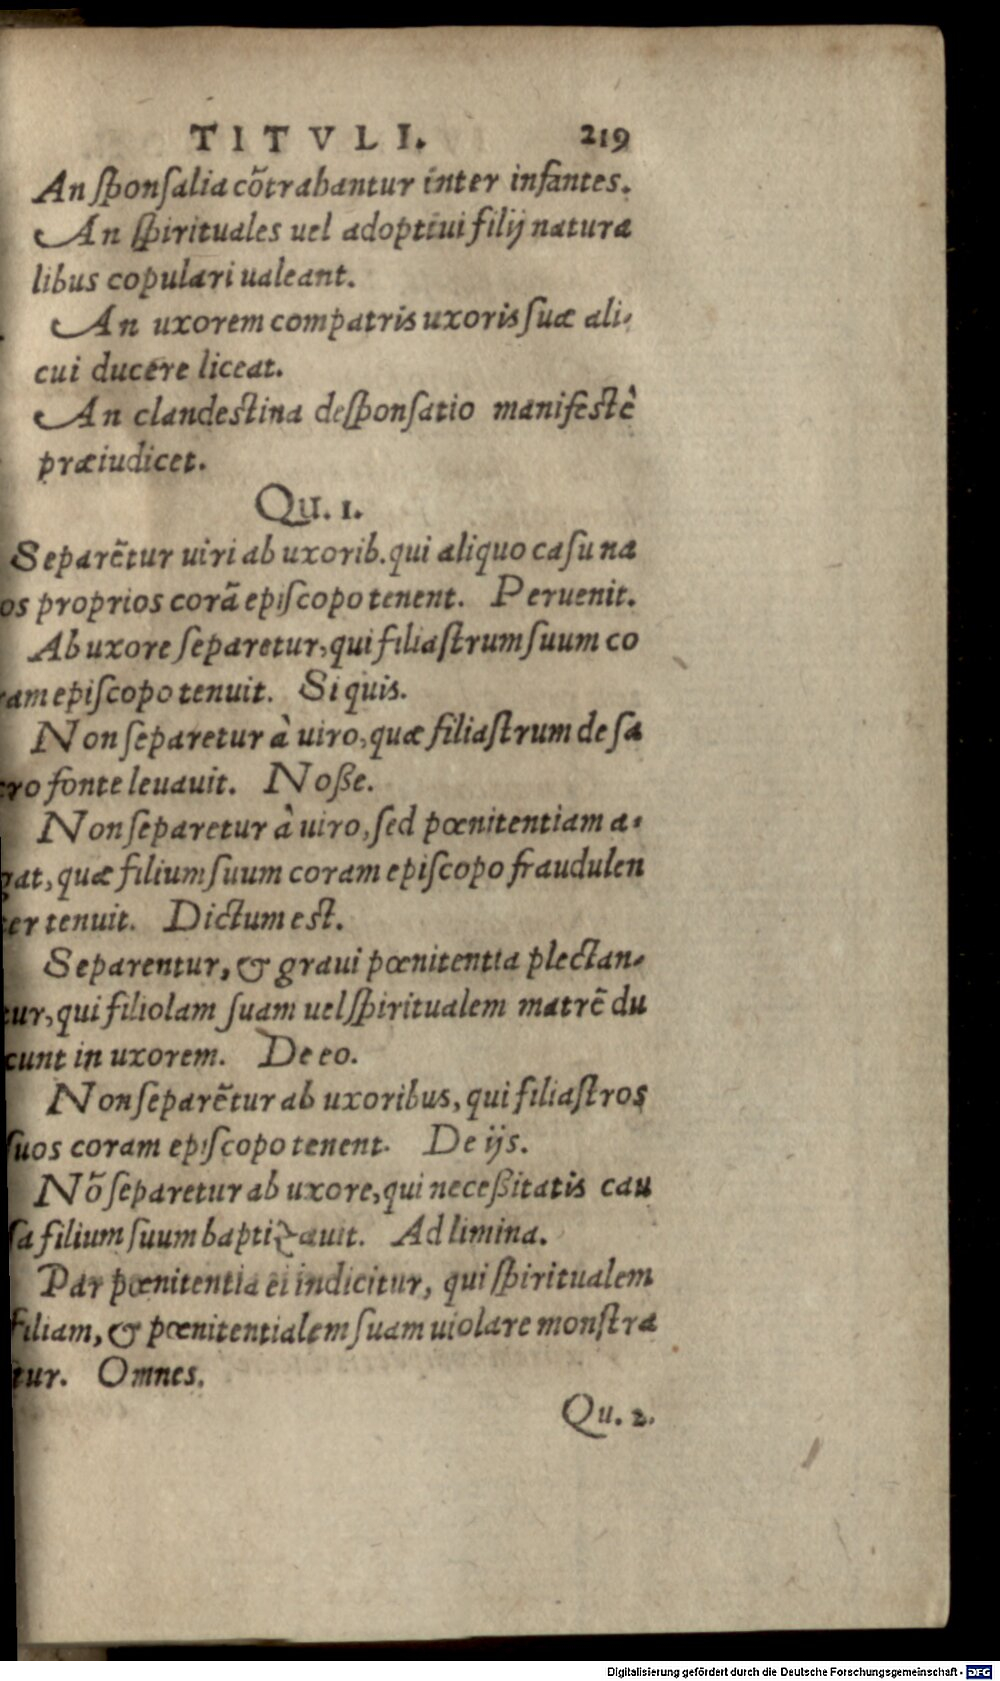 TITVLI. 219
An sponsalia cõtrahantur inter infantes.
An spirituales uel adoptiui filij natura
libus copulari ualeant.
An uxorem compatris uxoris suæ ali-
cui ducere liceat.
An clandestina desponsatio manifestè
præiudicet.
QU. 1.
Separẽtur uiri ab uxorib. qui aliquo casu na
os proprios corã episcopo tenent. Peruenit.
Ab uxore separetur, qui filiastrum suum co
ram episcopo tenuit. Si quis.
Non separetur à uiro, quæ filiastrum de sa
cro fonte leuauit. Nosse.
Non separetur à uiro, sed pœnitentiam a-
gat, quæ filium suum coram episcopo fraudulen
ter tenuit. Dictum est.
Separentur, & graui pœnitentia plectan-
tur, qui filiolam suam uel spiritualem matrẽ du
cunt in uxorem. De eo.
Non separẽtur ab uxoribus, qui filiastros
suos coram episcopo tenent. De ijs.
Nõ separetur ab uxore, qui necessitatis cau
sa filium suum baptizauit. Ad limina.
Par pœnitentia ei indicitur, qui spiritualem
filiam, & pœnitentialem suam uiolare monstra
tur. Omnes.
Qu. 2.
Digitalisierung gefördert durch die Deutsche Forschungsgemeinschaft - DFG